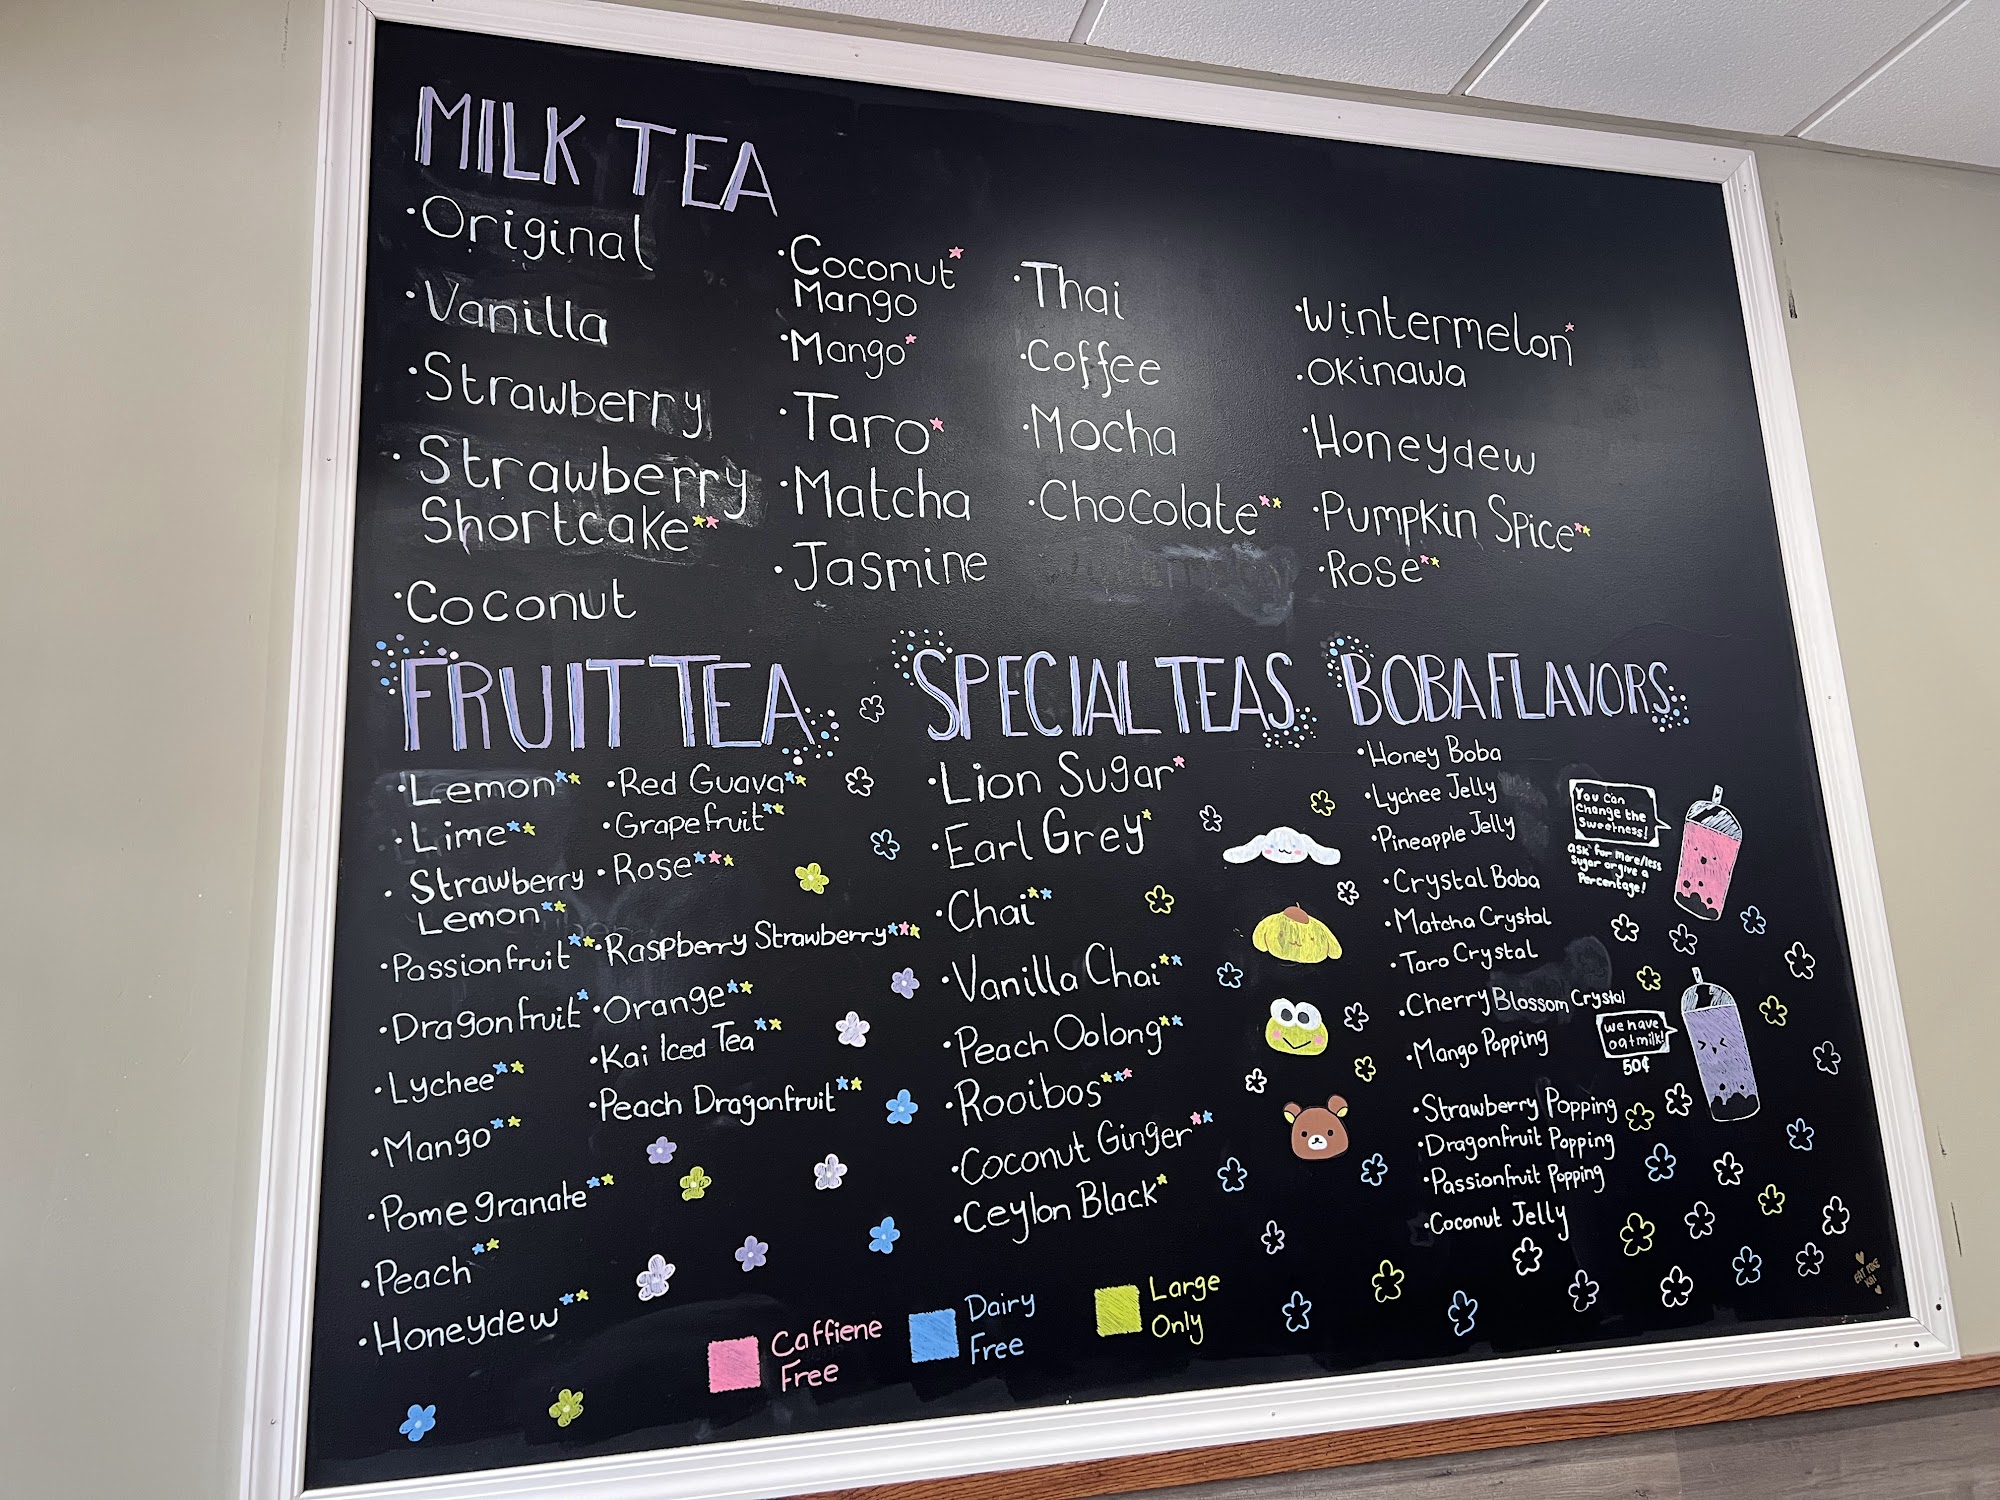 MILK TEA
·Original
·Vanilla
·Strawberry
·Strawberry
Shortcake
·Coconut
·Coconut
Mango
·Mango
·Taro
·Matcha
·Jasmine
·Thai
·Coffee
·Mocha
·Chocolate
·Wintermelon
·Okinawa
·Honeydew
·Pumpkin Spice
·Rose
FRUIT TEA
·Lemon
·Lime
·Strawberry
Lemon
·Passionfruit
·Dragonfruit
·Lychee
·Mango
·Pomegranate
·Peach
·Honeydew
·Red Guava
·Grapefruit
·Rose
·Raspberry Strawberry
·Orange
·Kai Iced Tea
·Peach Dragonfruit
SPECIAL TEAS
·Lion Sugar
·Earl Grey
·Chai
·Vanilla Chai
·Peach Oolong
·Rooibos
·Coconut Ginger
·Ceylon Black
BOBA FLAVORS
·Honey Boba
·Lychee Jelly
·Pineapple Jelly
·Crystal Boba
·Matcha Crystal
·Taro Crystal
·Cherry Blossom Crystal
·Mango Popping
·Strawberry Popping
·Dragonfruit Popping
·Passionfruit Popping
·Coconut Jelly
You can
change the
sweetness!
ask for more/less
sugar or give a
percentage!
we have
oatmilk!
50¢
Caffiene
Free
Dairy
Free
Large
Only
EAT POKE
KAI